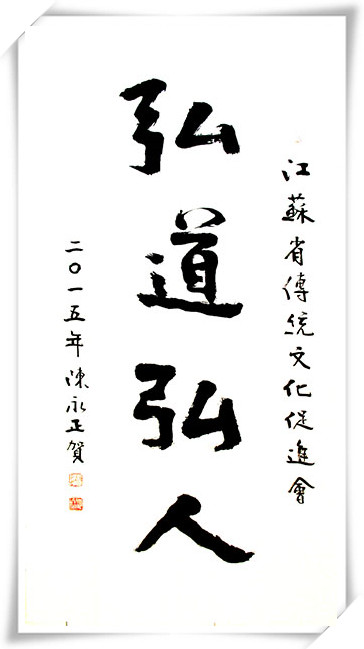 江蘇省傳統文化促進會
弘道弘人
二〇一五年陳永正賀